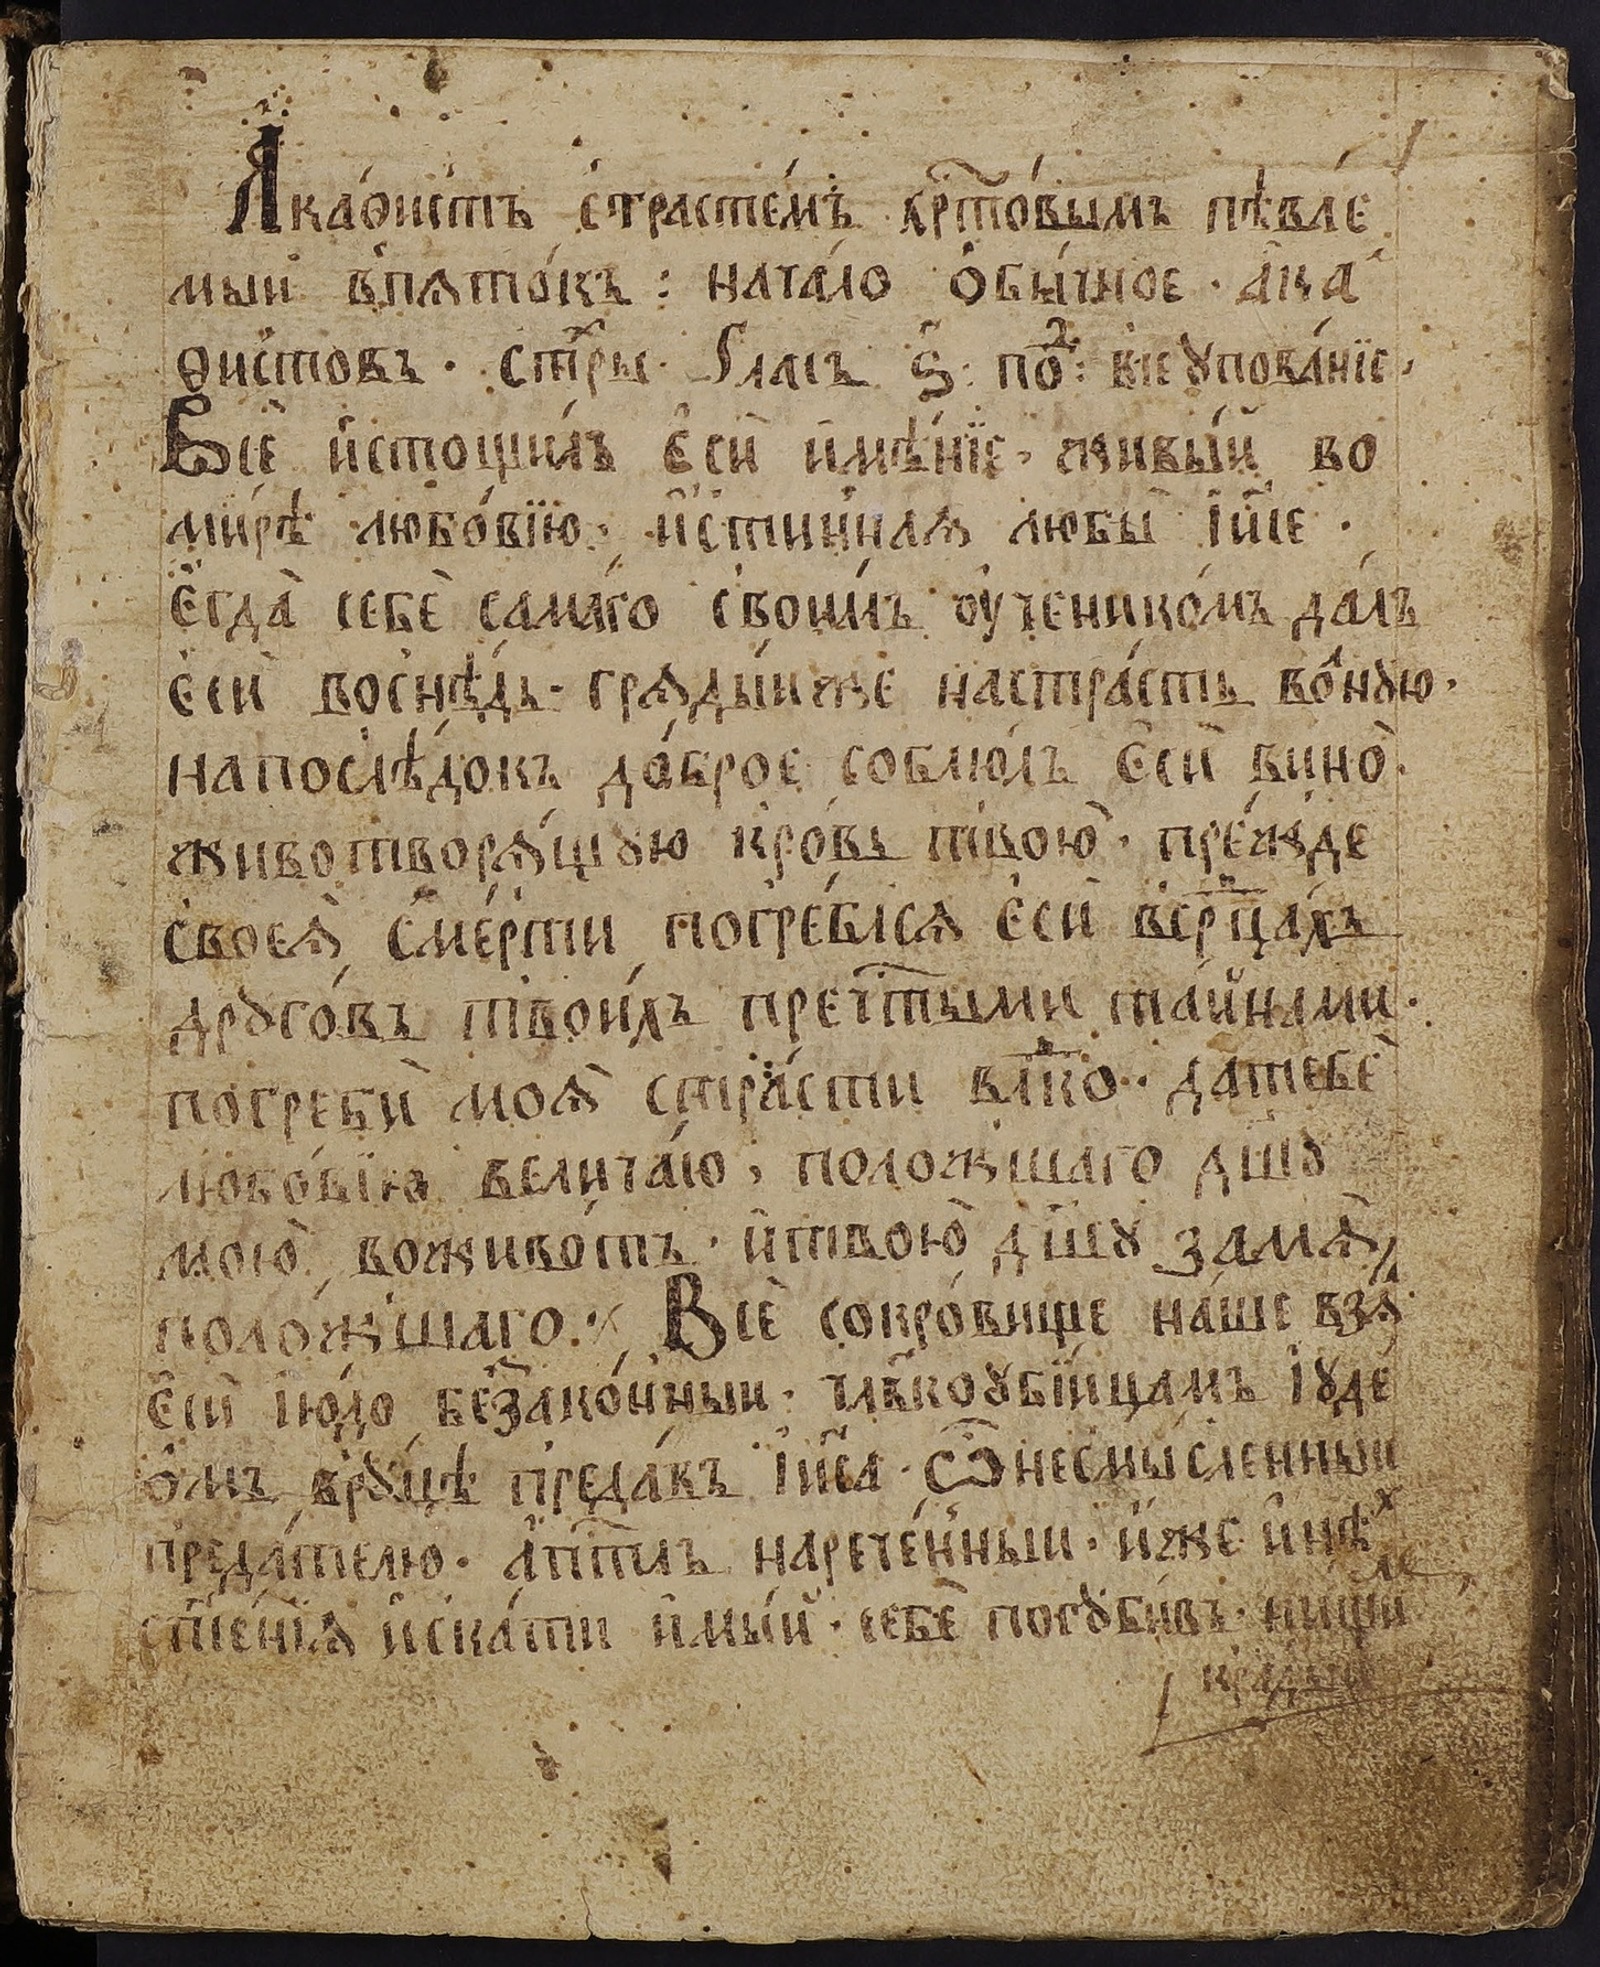 А҆ка́ѳистъ стра́стемъ хрⷭ҇то́вымъ пѣ́вае
мыи в̾пѧто́къ : нача́ло ѻ҆бы́чное · а҆ка́
ѳистовъ · стⷯры · Гласъ ѕ҃ · поⷣ : все ꙋпова́нїе ,
Всѐ и҆стощи́лъ є҆сѝ и҆мѣ́нїе · живы́й во
ми́рѣ любо́вїю · и҆́стиннаѧ любы̀ і҆и҃се ·
Є҆гда̀ себѐ самаго свои́мъ ᲂу҆ченико́мъ да́лъ
є҆сѝ воснѣ́дь · грѧды́иже настра́сть во́лнꙋю ·
напослѣ́докъ до́брое соблю́лъ є҆сѝ вино̀ ·
животворѧ́щꙋю кро́вь твою̀ · пре́жде
своеѧ̀ сме́рти погре́блсѧ є҆сѝ в̾срⷣцахъ
дрꙋго́въ твои́хъ пречⷭ҇тыми та́йнами ·
погребѝ моѧ̀ стра́сти влⷣко · датебѐ
любо́вїю велича́ю , положшаго дш҃ꙋ
мою̀ воживо́тъ · и҆твою̀ дш҃ꙋ замѧ̀
поло́жшаго · Всѐ сокро́вище на́ше взѧ́
є҆сѝ і҆ю́до беззако́нныи · чл҃вкоꙋбі́йцамъ і҆ꙋде́
ѡмъ врꙋ́цѣ преда́въ і҆и҃са · Ѽ несмы́сленныи
преда́телю · а҆пⷭ҇тлъ нарече́нныи · и҆́же и҆нѣⷯ
сп҃се́нїѧ и҆ска́ти и҆мы́й · себѐ погꙋби́въ · нищи
кра́дыи